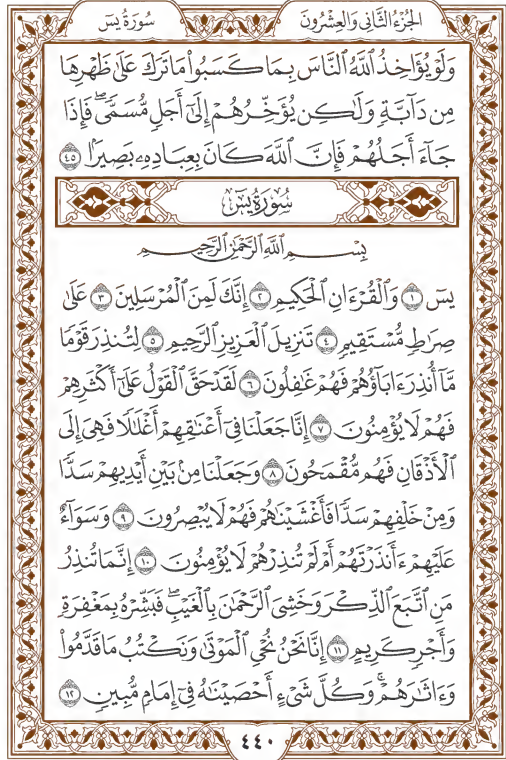 الجُزْءُ الثَّانِي وَالعِشْرُونَ
سُورَةُ يسٓ
وَلَوْ يُؤَاخِذُ ٱللَّهُ ٱلنَّاسَ بِمَا كَسَبُوا۟ مَا تَرَكَ عَلَىٰ ظَهْرِهَا
مِن دَآبَّةٍ وَلَٰكِن يُؤَخِّرُهُمْ إِلَىٰٓ أَجَلٍ مُّسَمًّى ۖ فَإِذَا
جَآءَ أَجَلُهُمْ فَإِنَّ ٱللَّهَ كَانَ بِعِبَادِهِۦ بَصِيرًۢا ٤٥
سُورَةُ يسٓ
بِسْمِ ٱللَّهِ ٱلرَّحْمَٰنِ ٱلرَّحِيمِ
يسٓ ١ وَٱلْقُرْءَانِ ٱلْحَكِيمِ ٢ إِنَّكَ لَمِنَ ٱلْمُرْسَلِينَ ٣ عَلَىٰ
صِرَٰطٍ مُّسْتَقِيمٍ ٤ تَنزِيلَ ٱلْعَزِيزِ ٱلرَّحِيمِ ٥ لِتُنذِرَ قَوْمًا
مَّآ أُنذِرَ ءَابَآؤُهُمْ فَهُمْ غَٰفِلُونَ ٦ لَقَدْ حَقَّ ٱلْقَوْلُ عَلَىٰٓ أَكْثَرِهِمْ
فَهُمْ لَا يُؤْمِنُونَ ٧ إِنَّا جَعَلْنَا فِىٓ أَعْنَٰقِهِمْ أَغْلَٰلًا فَهِىَ إِلَى
ٱلْأَذْقَانِ فَهُم مُّقْمَحُونَ ٨ وَجَعَلْنَا مِنۢ بَيْنِ أَيْدِيهِمْ سَدًّا
وَمِنْ خَلْفِهِمْ سَدًّا فَأَغْشَيْنَٰهُمْ فَهُمْ لَا يُبْصِرُونَ ٩ وَسَوَآءٌ
عَلَيْهِمْ ءَأَنذَرْتَهُمْ أَمْ لَمْ تُنذِرْهُمْ لَا يُؤْمِنُونَ ١٠ إِنَّمَا تُنذِرُ
مَنِ ٱتَّبَعَ ٱلذِّكْرَ وَخَشِىَ ٱلرَّحْمَٰنَ بِٱلْغَيْبِ ۖ فَبَشِّرْهُ بِمَغْفِرَةٍ
وَأَجْرٍ كَرِيمٍ ١١ إِنَّا نَحْنُ نُحْىِ ٱلْمَوْتَىٰ وَنَكْتُبُ مَا قَدَّمُوا۟
وَءَاثَٰرَهُمْ ۚ وَكُلَّ شَىْءٍ أَحْصَيْنَٰهُ فِىٓ إِمَامٍ مُّبِينٍ ١٢
٤٤٠